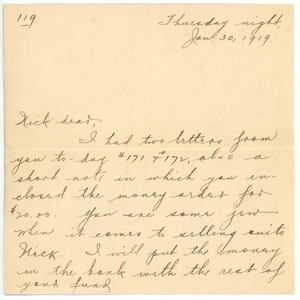 119
Thursday night.
Jan. 30, 1919.
Nick dear,
I had two letters from
you to-day #171 & #172, also a
short note in which you en-
closed the money order for
$20.00. You are some jew
when it comes to selling suits
Nick. I will put the money
in the bank with the rest of
your fund